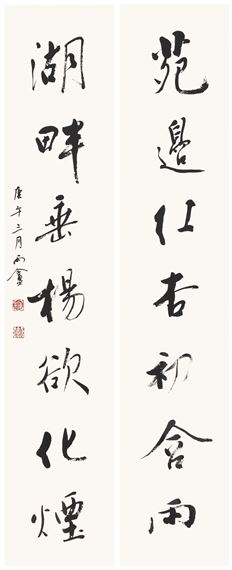 苑邊紅杏初含雨
湖畔垂楊欲化煙
庚午三月雨盦